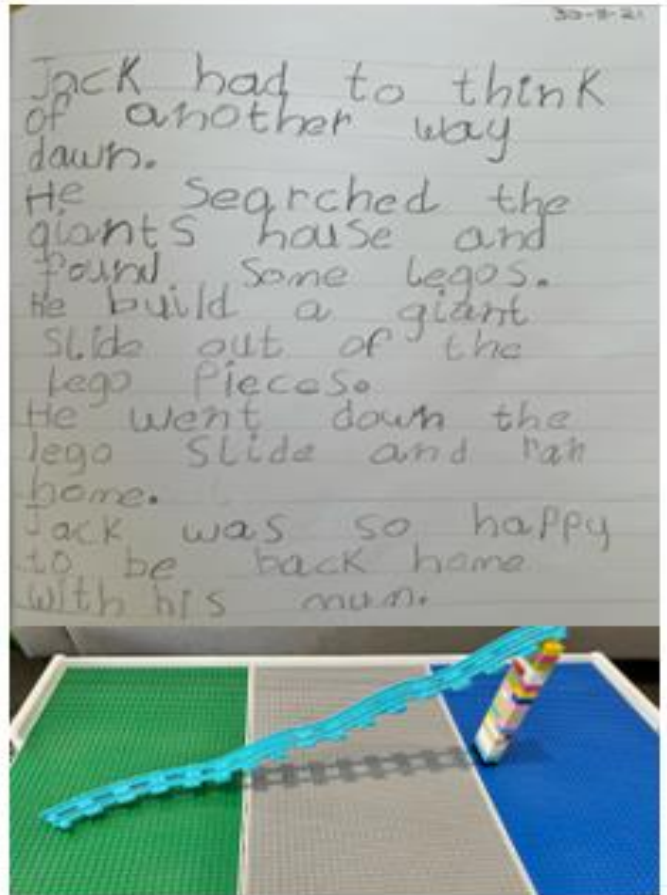 30-8-21
Jack had to think
of another way
dawn.
He searched the
giants house and
found some legos.
He build a giant
slide out of the
lego pieces.
He went down the
lego slide and ran
home.
Jack was so happy
to be back home
with his mum.